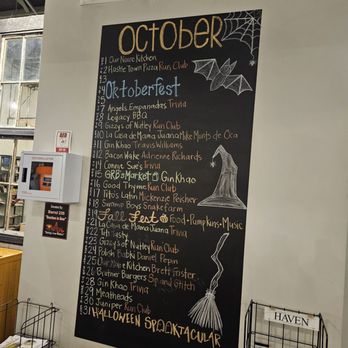 OCTOBER
1 Our Nouve Kitchen
2 Hustle Town Pizza Run Club
3
4 Oktoberfest
5
7 Angels Empanadas Trivia
8 Legacy BBQ
9 Gizzys of Nutley Run Club
10 La Casa de Mama Juana Mike Munts de Oca
11 Gin Khao Travis Williams
12 Bacon Wake Adrienne Richards
14 Connie Sue's Trivia
15 GRB Market Gin Khao
16 Good Thyme Run Club
17 Tito's Latin Mckenzie Peicher
18 Swamp Boys Snakefarm
19 Fall Fest Food-Pumpkins-Music
21 La Casa de Mama Juana Trivia
22 Tuti Tasty
23 Gizzys of Nutley Run Club
24 Polish Babki Daniel Pepin
25 Our Nouve Kitchen Brett Foster
26 Buttner Burgers Sip and Stitch
28 Gin Khao Trivia
29 Meatheads
30 Juniper Run Club
31 HALLOWEEN SPOOKTACULAR
AED
HAVEN